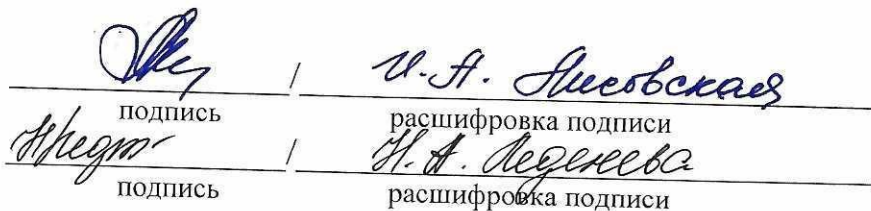 / И.А. Лисовская
подпись расшифровка подписи
/ Н.А. Леденева
подпись расшифровка подписи